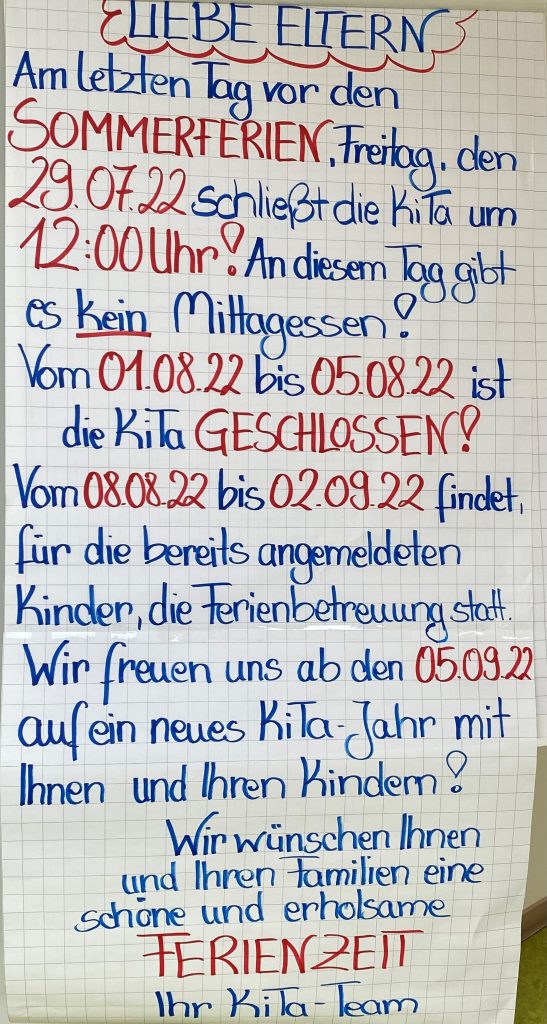 LIEBE ELTERN
Am letzten Tag vor den
SOMMERFERIEN, Freitag, den
29.07.22 schließt die KiTa um
12:00 Uhr! An diesem Tag gibt
es kein Mittagessen!
Vom 01.08.22 bis 05.08.22 ist
die KiTa GESCHLOSSEN!
Vom 08.08.22 bis 02.09.22 findet,
für die bereits angemeldeten
Kinder, die Ferienbetreuung statt.
Wir freuen uns ab den 05.09.22
auf ein neues KiTa-Jahr mit
Ihnen und Ihren Kindern!
Wir wünschen Ihnen
und Ihren Familien eine
schöne und erholsame
FERIENZEIT
Ihr KiTa-Team